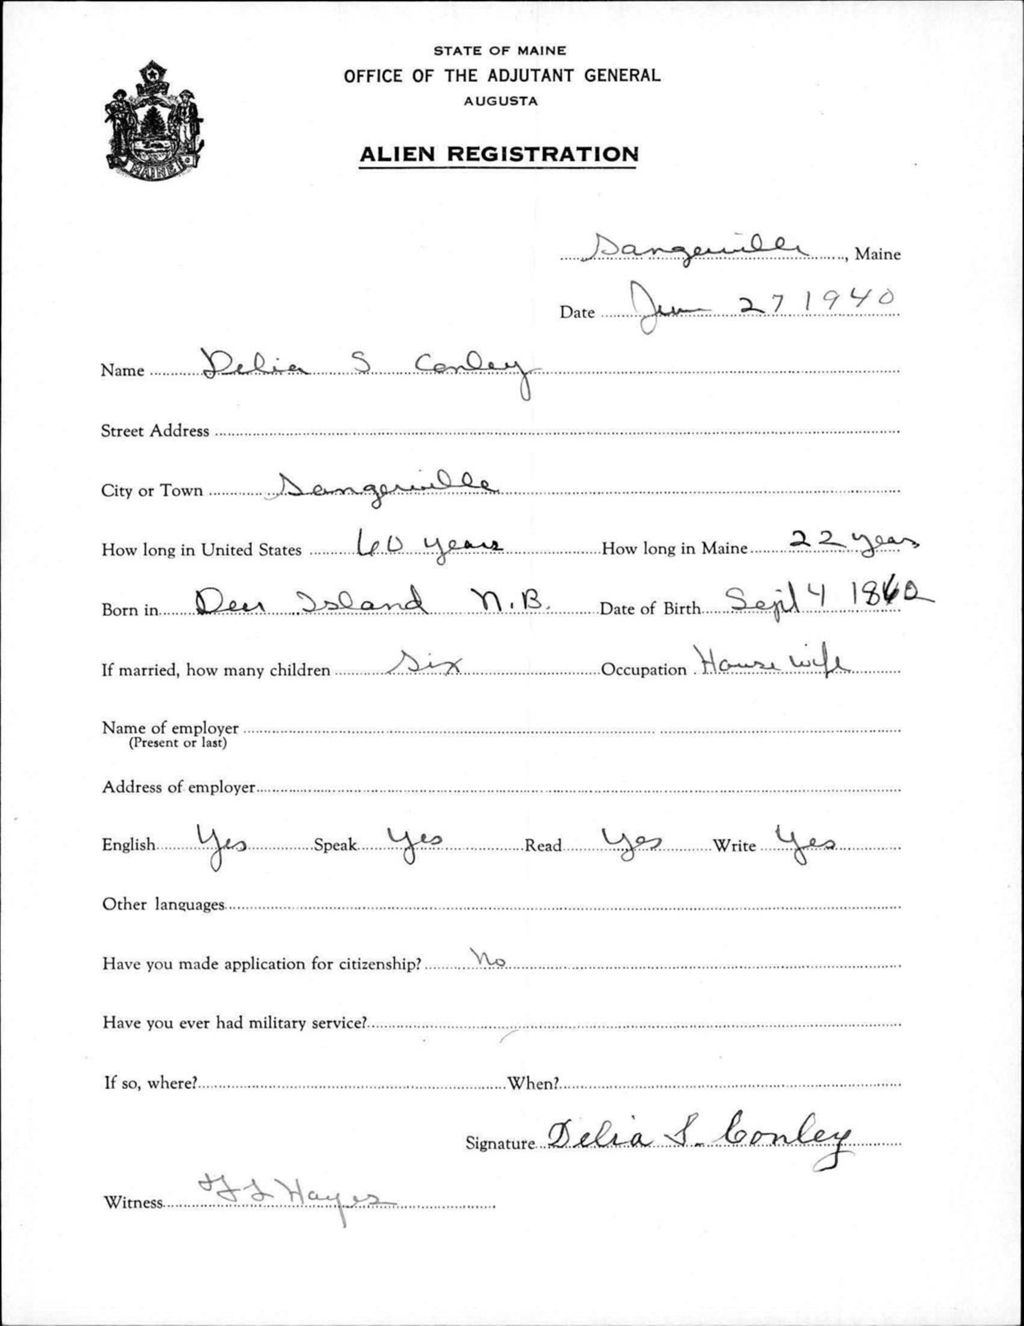 STATE OF MAINE
OFFICE OF THE ADJUTANT GENERAL
AUGUSTA
ALIEN REGISTRATION
MAINE
Sangerville, Maine
Date June 27 1940
Name Delia S Conley
Street Address
City or Town Sangerville
How long in United States 60 years How long in Maine 22 years
Born in Deer Island N.B. Date of Birth Sept 4
If married, how many children Six Occupation House wife
Name of employer
(Present or last)
Address of employer
English Yes Speak Yes Read Yes Write Yes
Other languages
Have you made application for citizenship? No
Have you ever had military service?
If so, where? When?
Signature Delia S. Conley
Witness Hayes